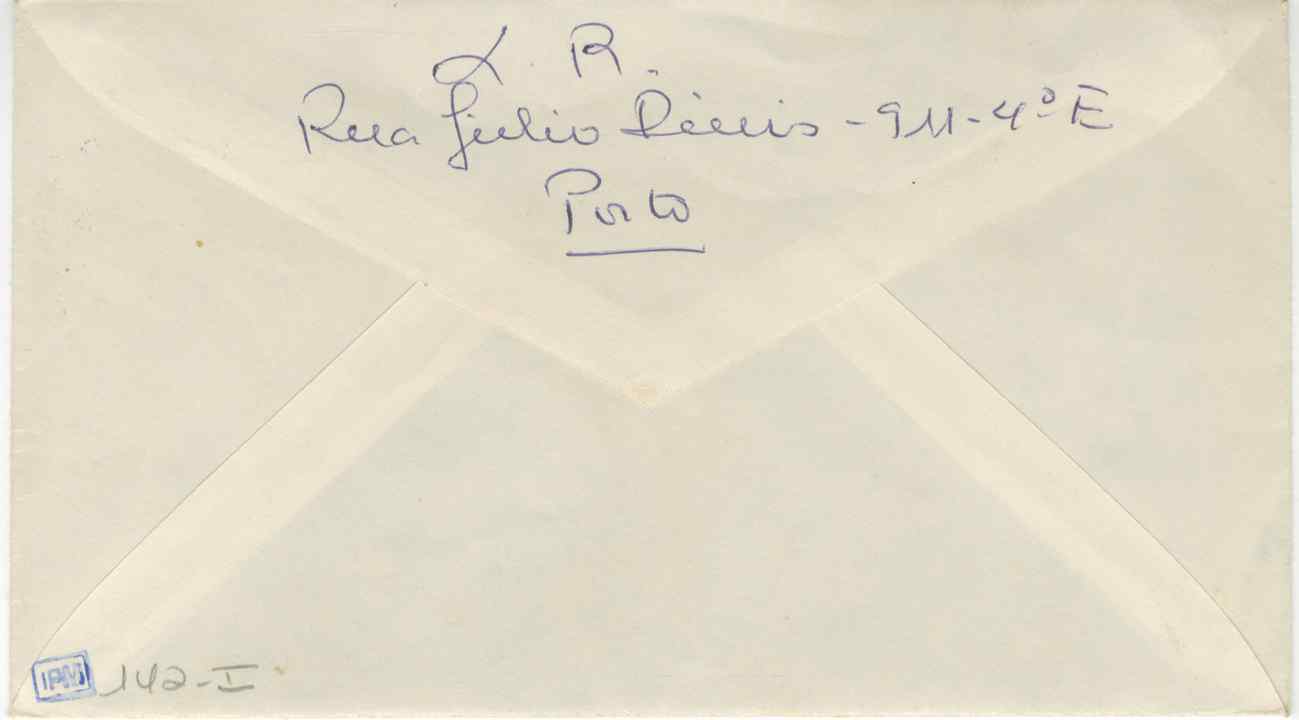 L. R.
Rua Júlio Dinis - 911-4º E
Porto
IPM 142-I